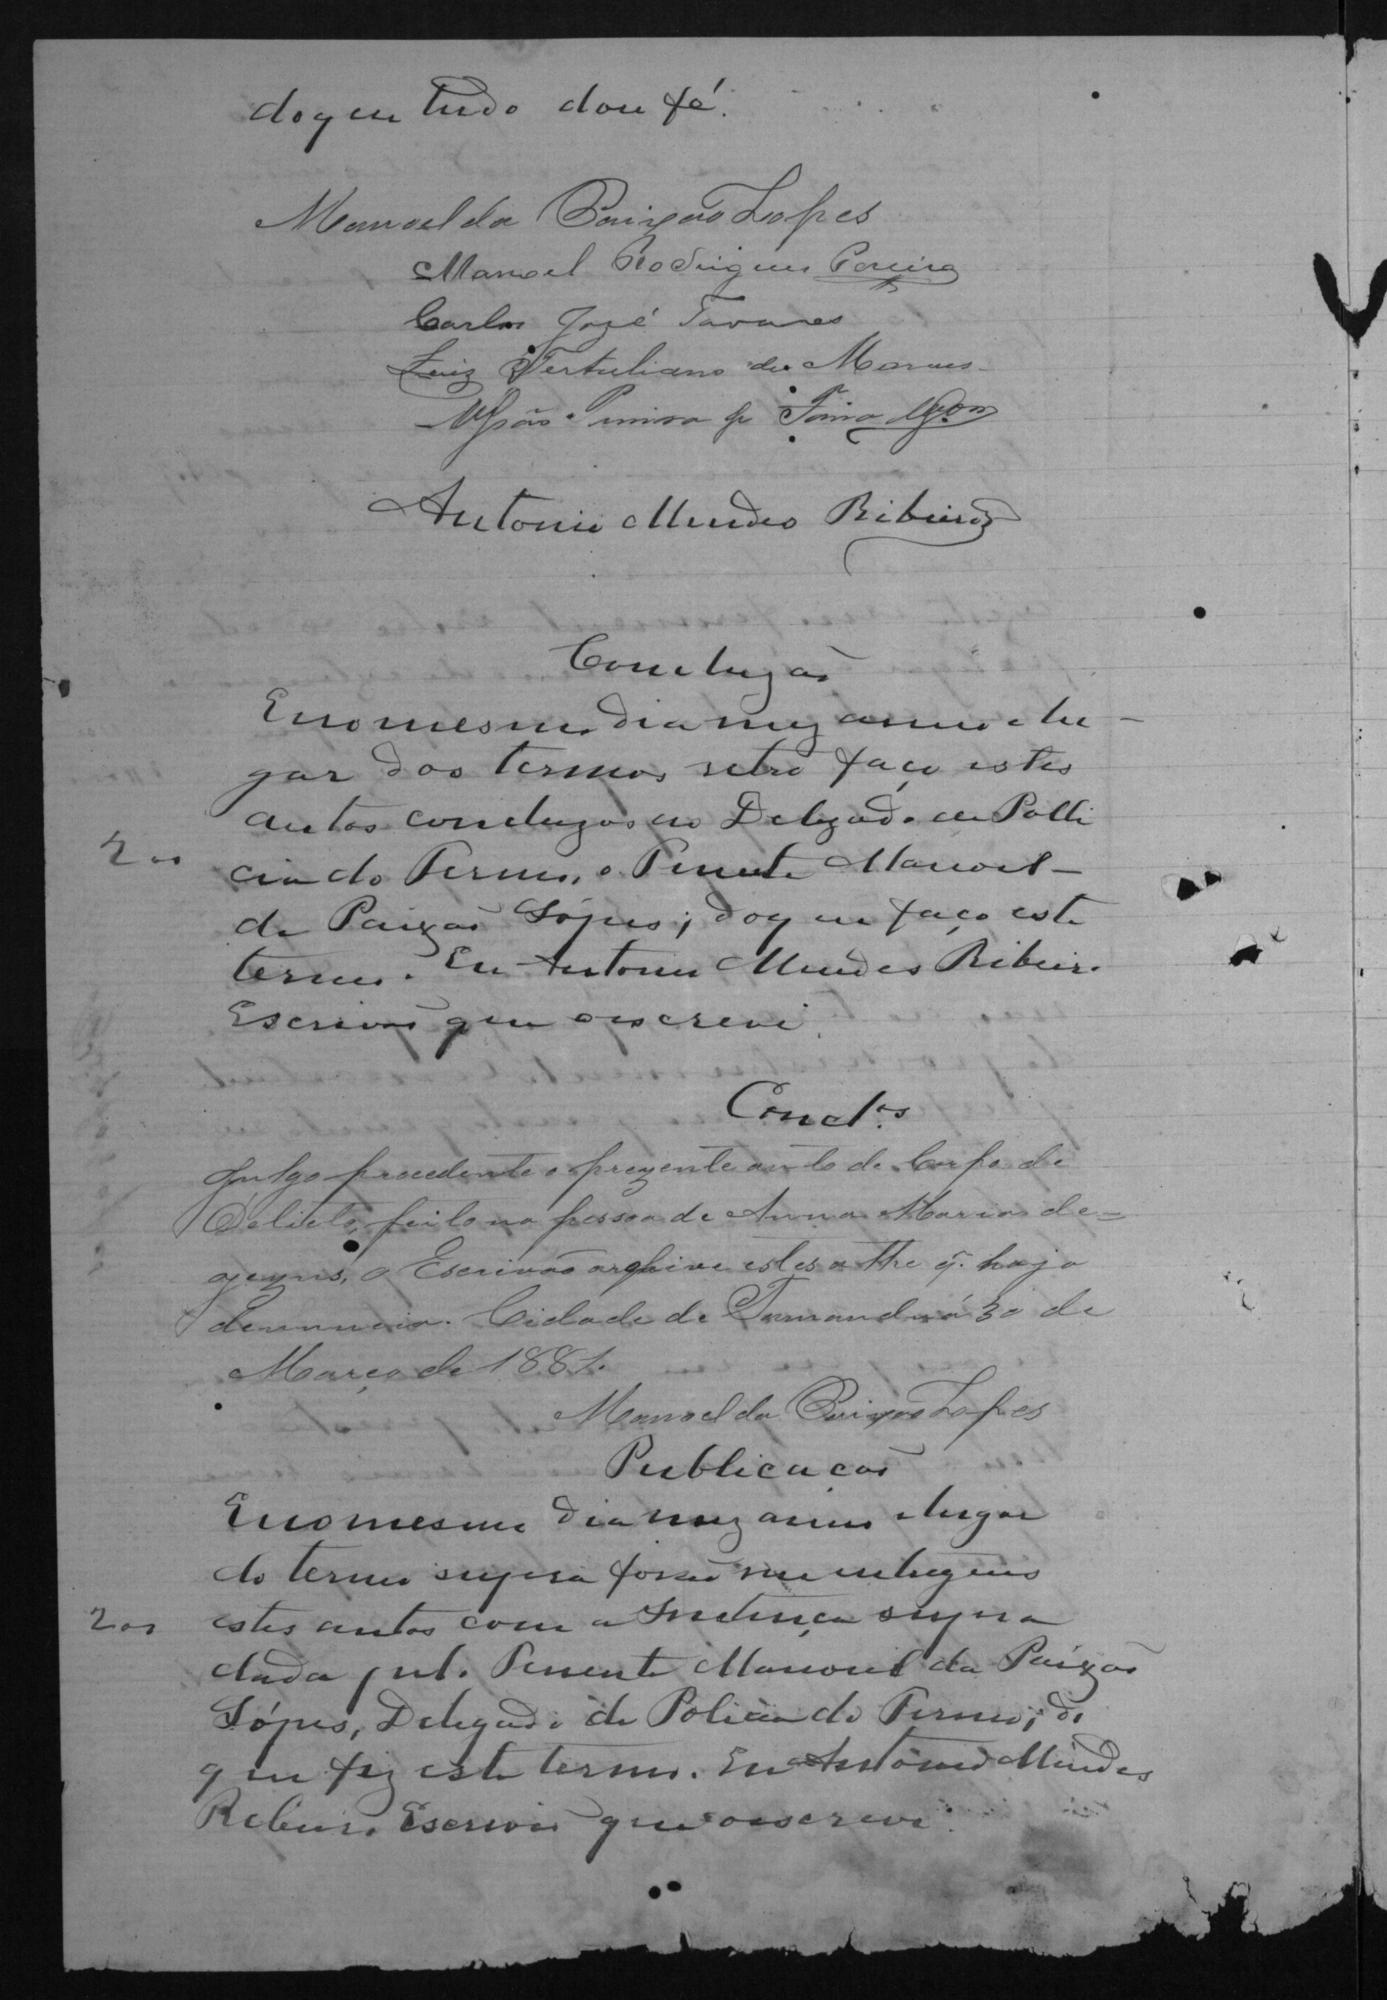 do que tudo dou fé.
Manoel da Paixão Lopes
Manoel Rodrigues Pereira
Carlos José Tavares
Luiz Tertuliano de Moraes
Antonio Mendes Ribeiro
Concluzão
E no mesmo dia mez anno e lu-
gar dos termos retro faço estes
autos concluzos ao Delegado de Polli
200
cia do Termo, o Tenente Manoel
da Paizão Lópes; do que faço este
termo. Eu Antonio Mendes Ribeiro
Escrivão que o escrevi.
Concl.os
Julgo procedente o prezente auto de Corpo de
Delicto feito na pessoa de Anna Maria de
o Escrivão archive estes athe q. haja
denuncia. Cidade de Tamanduá 30 de
Março de 1881.
Manoel da Paixão Lopes
Publicação
E no mesmo dia mez anno e lugar
do termo supra forão me entregues
200
estes autos com a Sentença supra
dada pelo Tenente Manoel da Paizão
Lópes, Delegado de Policia do Termo; do
que fiz este termo. Eu Antonio Mendes
Ribeiro Escrivão que o escrevi.